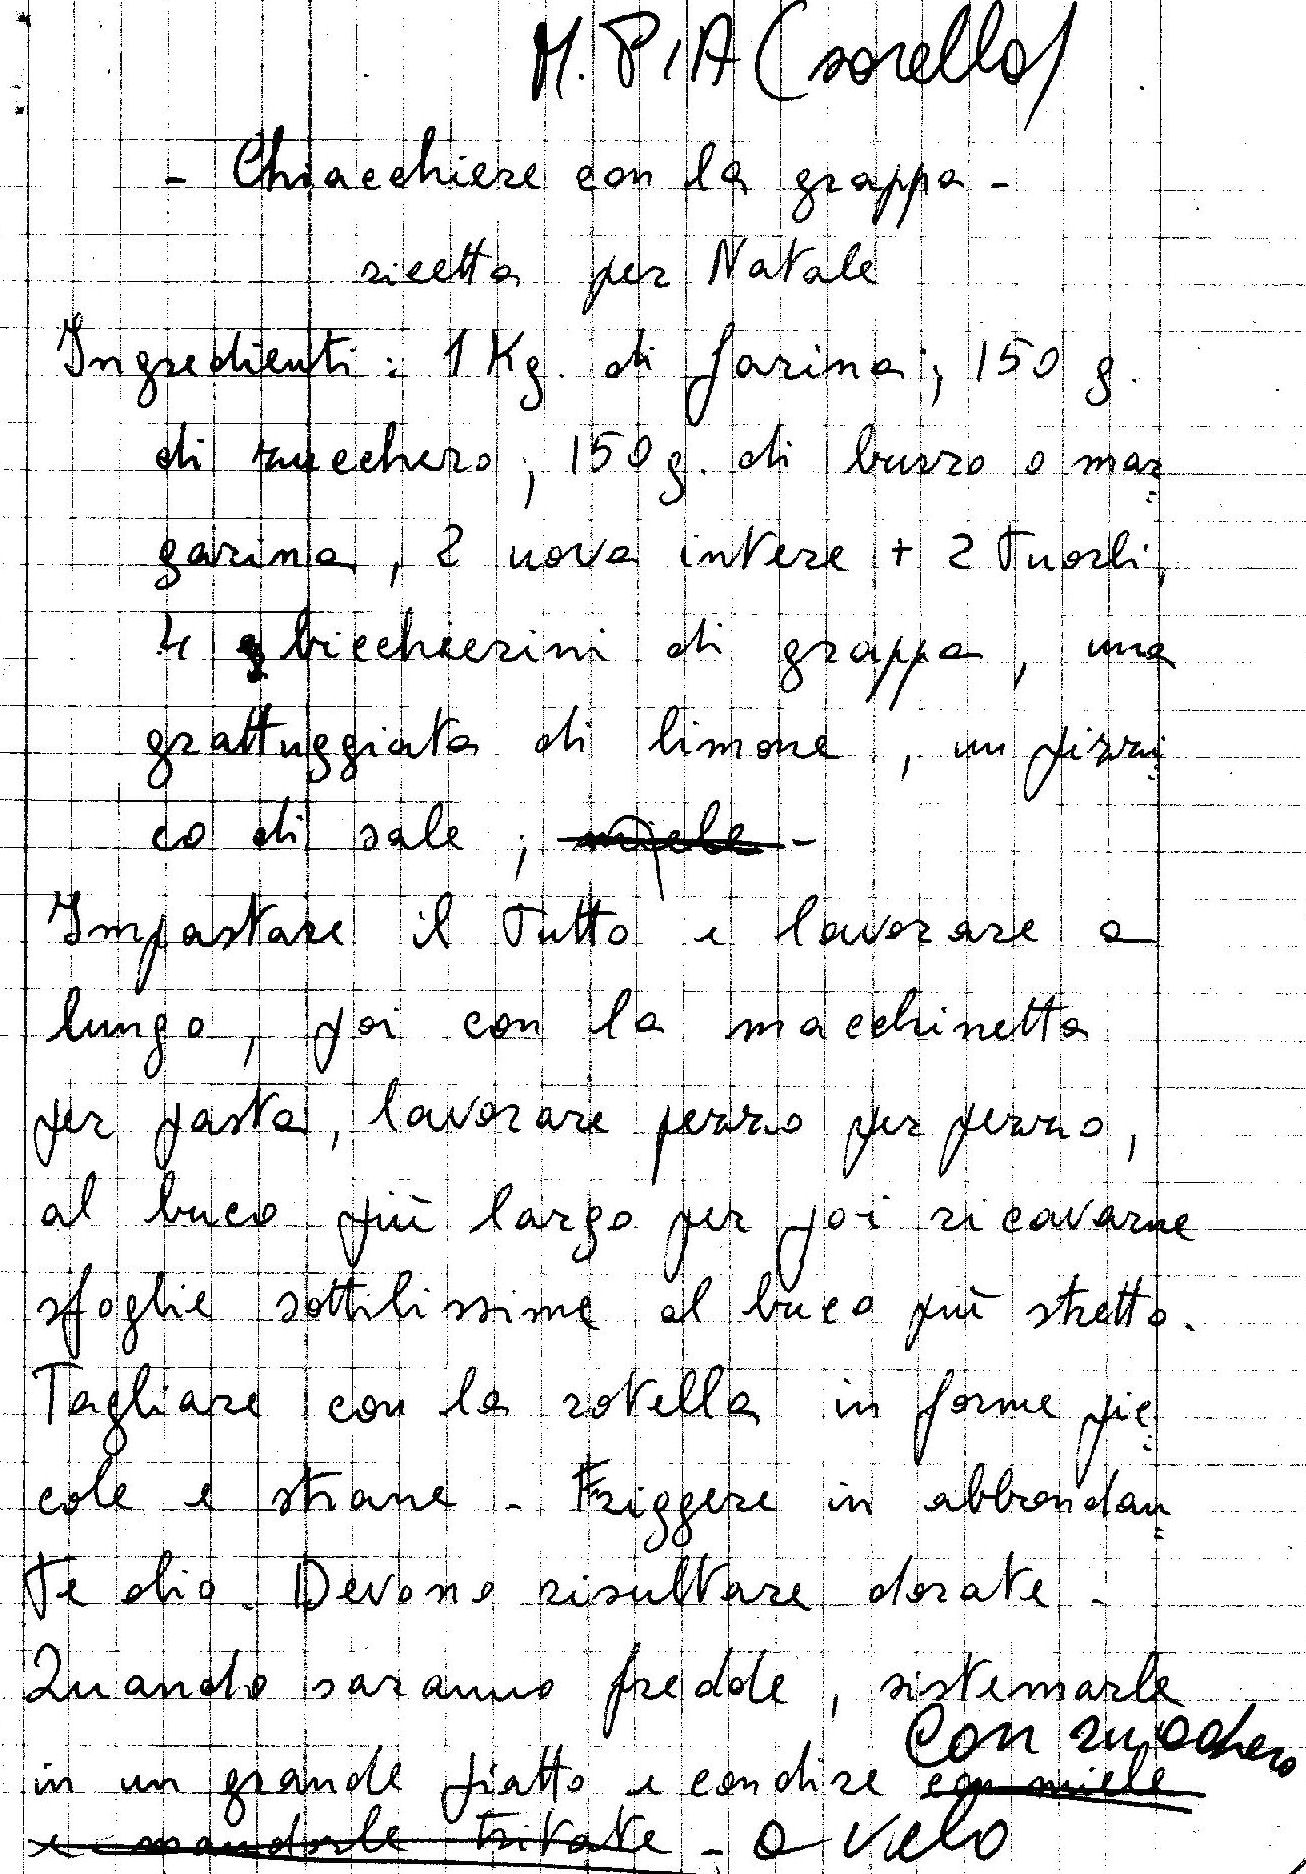 M. PIA (sorella)
- Chiacchiere con la grappa -
ricetta per Natale
Ingredienti: 1 Kg. di farina; 150 g.
di zucchero; 150 g. di burro o mar
garina, 2 uova intere + 2 tuorli,
4 bicchierini di grappa, una
grattuggiata di limone, un pizzi
co di sale; miele -
Impastare il tutto e lavorare a
lungo, poi con la macchinetta
per pasta, lavorare pezzo per pezzo,
al buco più largo per poi ricavarne
sfoglie sottilissime al buco più stretto.
Tagliare con la rotella in forme pic
cole e strane - Friggere in abbondan
te olio. Devono risultare dorate -
Quando saranno fredde, sistemarle
con zucchero
in un grande piatto e condire con miele
e mandorle tritate - a velo